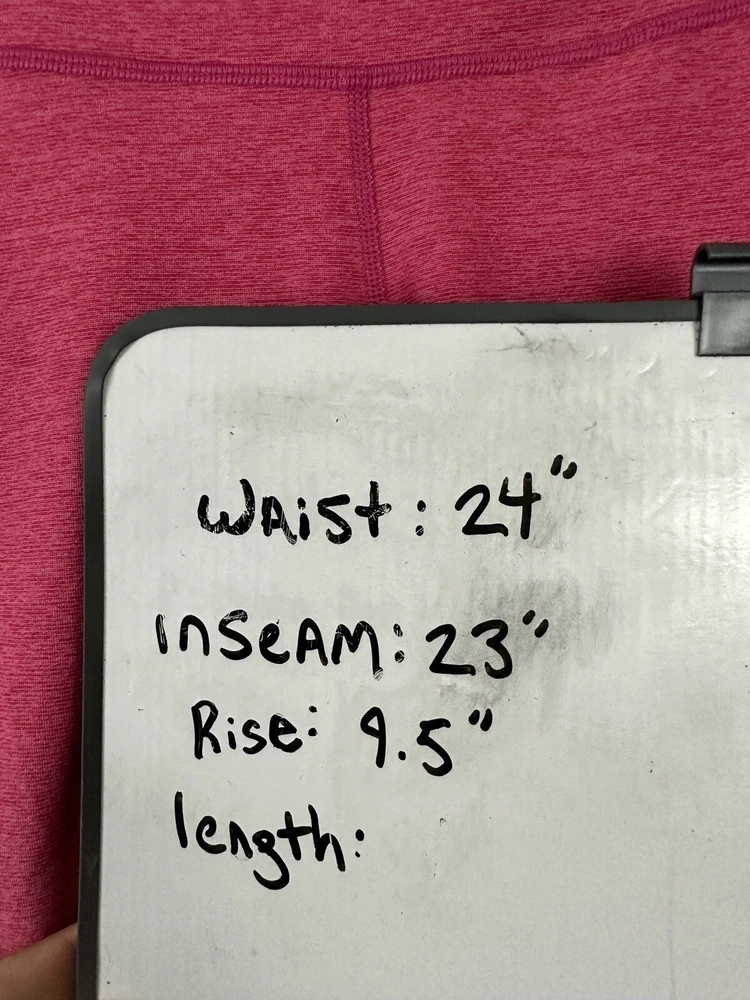 Waist: 24"
Inseam: 23"
Rise: 9.5"
length: